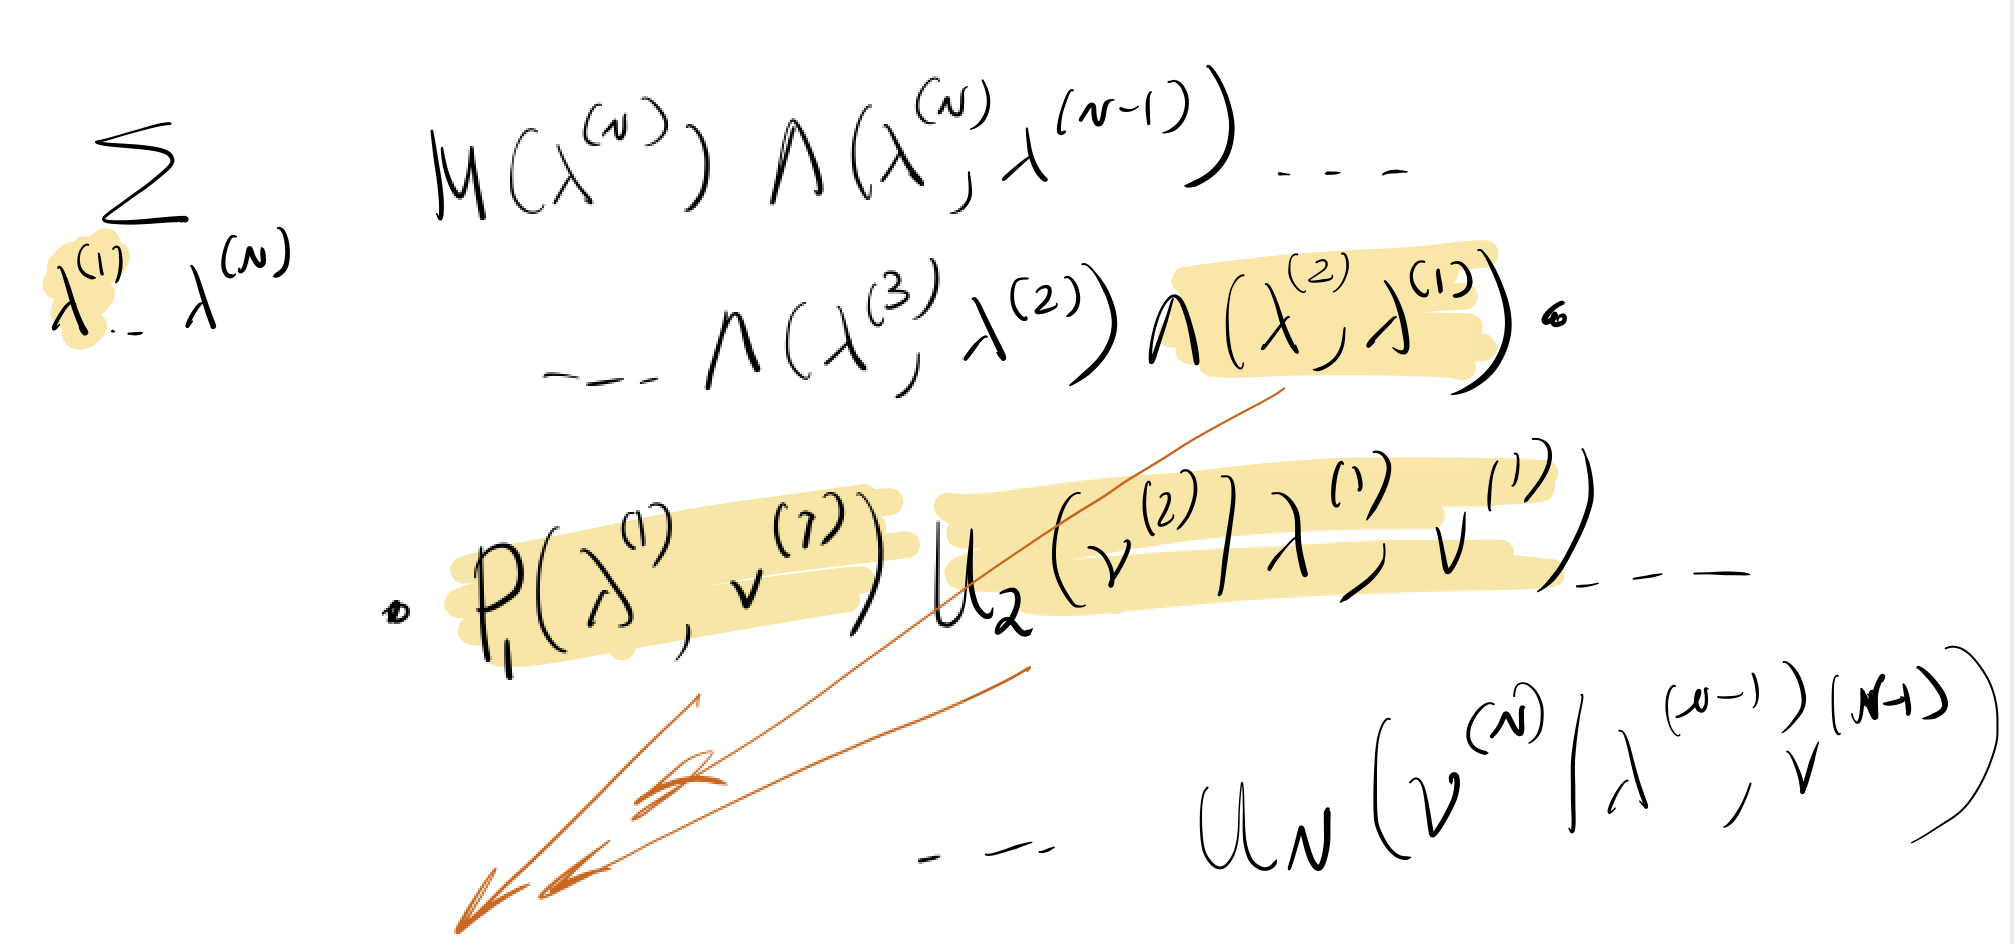 ∑_{λ^{(1)} … λ^{(N)}} M(λ^{(N)}) Λ(λ^{(N)}, λ^{(N-1)}) - - -
- - - - Λ(λ^{(3)}, λ^{(2)}) Λ(λ^{(2)}, λ^{(1)}) ·
· P_1(λ^{(1)}, ν^{(1)}) U_2(ν^{(2)} | λ^{(1)}, ν^{(1)}) - - -
- - - U_N(ν^{(N)} | λ^{(N-1)}, ν^{(N-1)})